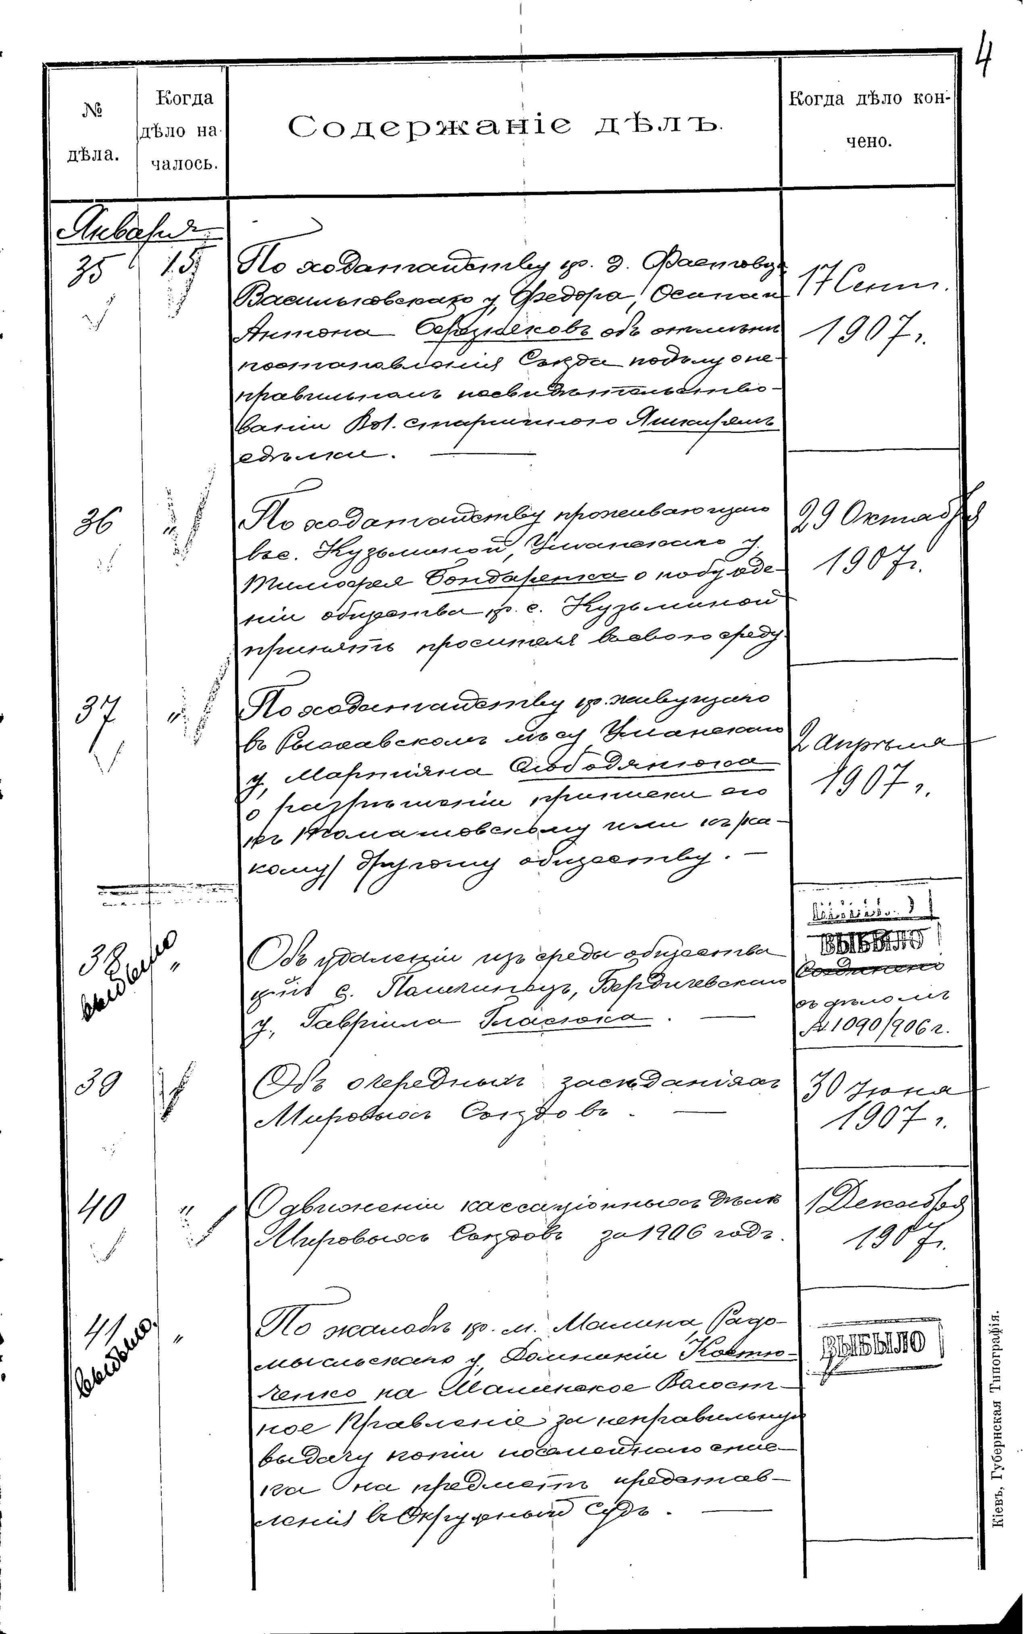 4
№ дѣла.
Когда дѣло началось.
Содержаніе дѣлъ.
Когда дѣло кончено.
Января
35 15
По ходатайству кр. д. Фастовца
Васильковскаго у, Федора, Осипа и
Антона Березняковъ объ отмѣнѣ
постановленія Съѣзда по дѣлу о не-
правильномъ засвидѣтельство-
ваніи Вол. старшиною
сдѣлки. —
17 Сент.
1907 г.
36 "
По ходатайству проживающаго
въ с. Кузьминой, Уманскаго у,
Тимофея Бондаренка о побужде-
ніи общества кр. с. Кузьминой
принять просителя въ свою среду.
29 Октября
1907 г.
37 "
По ходатайству кр. живущаго
въ Рыжавскомъ лѣсу Уманскаго
у, Мартіяна Слободянюка
о разрѣшеніи приписки его
къ Томашовскому или къ /ка-
кому/ другому обществу. —
2 апрѣля
1907 г.
38 "
выбыло
Объ удаленіи изъ среды общества
кр-нъ с. Пашкинецъ, Бердичевскаго
у, Гавріила Гласюка. —
ВЫБЫЛО
Соединено
съ дѣломъ
№ 1090/906 г.
39 "
Объ очередныхъ засѣданіяхъ
Мировыхъ Съѣздовъ. —
30 Іюня
1907 г.
40 "
О движеніи кассаціонныхъ дѣлъ
Мировыхъ Съѣздовъ за 1906 годъ.
1 Декабря
1907 г.
41 "
выбыло.
По жалобѣ кр. м. Малина Радо-
мысльскаго у, Домникіи Костю-
ченко на Малинское Волост-
ное Правленіе за неправильную
выдачу копіи посемейнаго спис-
ка на предметъ представ-
ленія въ Окружный Судъ. —
ВЫБЫЛО
Кіевъ, Губернская Типографія.